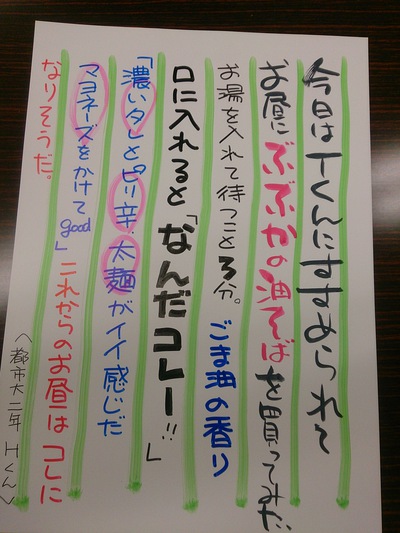 今日はTくんにすすめられて
お昼にぶぶかの油そばを買ってみた。
お湯を入れて待つこと3分。ごま油の香り
口に入れると「なんだコレー!!」
「濃いタレとピリ辛・太麺がイイ感じだ
マヨネーズをかけてgood」これからのお昼はコレに
なりそうだ。
(都市大二年 Hくん)